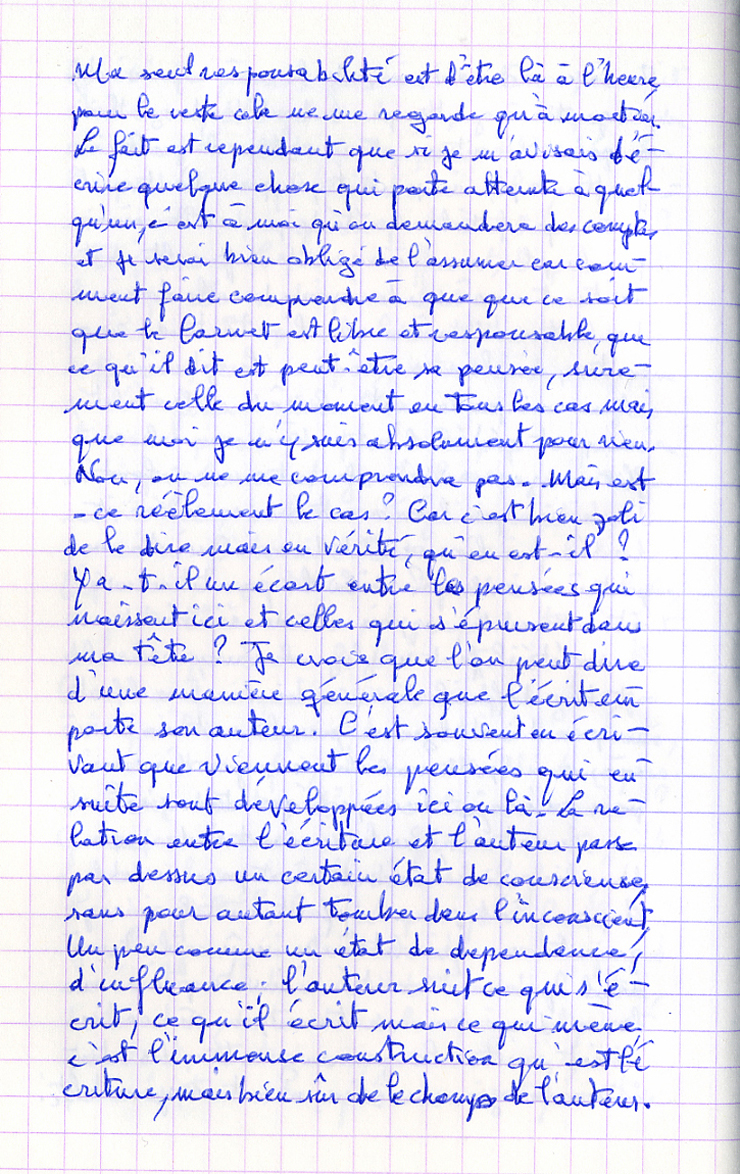 Ma seul responsabilité est d'être là à l'heure,
pour le reste cela ne me regarde qu'à moitié.
Le fait est cependant que si je m'avisais d'é-
crire quelque chose qui porte atteinte à quel-
qu'un, c'est à moi qu'on demandera des comptes
et je serai bien obligé de l'assumer car com-
ment faire comprendre à que que ce soit
que le Carnet est libre et responsable, que
ce qu'il dit est peut-être sa pensée, sure-
ment celle du moment en tous les cas mais
que moi je n'y suis absolument pour rien.
Non, on ne me comprendra pas. Mais est
-ce réellement le cas ? Car c'est bien joli
de le dire mais en vérité, qu'en est-il ?
Y a-t-il un écart entre les pensées qui
naissent ici et celles qui s'épuisent dans
ma tête ? Je crois que l'on peut dire
d'une manière générale que l'écrit em
porte son auteur. C'est souvent en écri-
vant que viennent les pensées qui en-
suite sont développées ici ou là. La re-
lation entre l'écriture et l'auteur passe
par dessus un certain état de conscience,
sans pour autant tomber dans l'inconscient,
Un peu comme un état de dependance,
d'influence ; l'auteur suit ce qui s'é-
crit, ce qu'il écrit mais ce qui mène,
c'est l'immense construction qu'est l'é
criture, mais bien sûr de le champ de l'auteur.